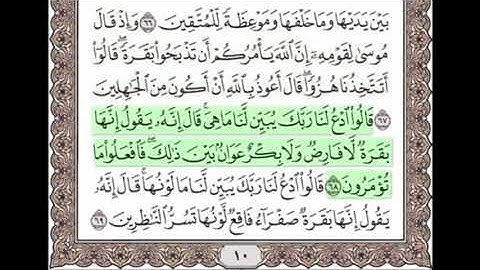 بَيْنَ يَدَيْهَا وَمَا خَلْفَهَا وَمَوْعِظَةً لِّلْمُتَّقِينَ ٦٦ وَإِذْ قَالَ
مُوسَىٰ لِقَوْمِهِۦٓ إِنَّ ٱللَّهَ يَأْمُرُكُمْ أَن تَذْبَحُوا۟ بَقَرَةً ۖ قَالُوٓا۟
أَتَتَّخِذُنَا هُزُوًا ۖ قَالَ أَعُوذُ بِٱللَّهِ أَنْ أَكُونَ مِنَ ٱلْجَـٰهِلِينَ
٦٧ قَالُوا۟ ٱدْعُ لَنَا رَبَّكَ يُبَيِّن لَّنَا مَا هِىَ ۚ قَالَ إِنَّهُۥ يَقُولُ إِنَّهَا
بَقَرَةٌ لَّا فَارِضٌ وَلَا بِكْرٌ عَوَانٌۢ بَيْنَ ذَٰلِكَ ۖ فَٱفْعَلُوا۟ مَا
تُؤْمَرُونَ ٦٨ قَالُوا۟ ٱدْعُ لَنَا رَبَّكَ يُبَيِّن لَّنَا مَا لَوْنُهَا ۚ قَالَ إِنَّهُۥ
يَقُولُ إِنَّهَا بَقَرَةٌ صَفْرَآءُ فَاقِعٌ لَّوْنُهَا تَسُرُّ ٱلنَّـٰظِرِينَ ٦٩
١٠